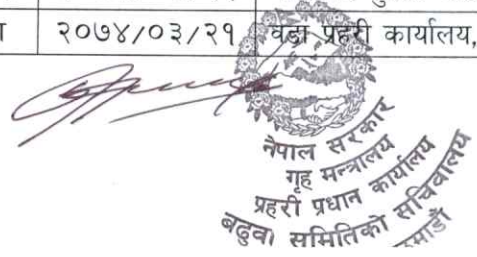 २०७४/०३/२१ वडा प्रहरी कार्यालय,
नेपाल सरकार
गृह मन्त्रालय
प्रहरी प्रधान कार्यालय
बढुवा समितिको सचिवालय